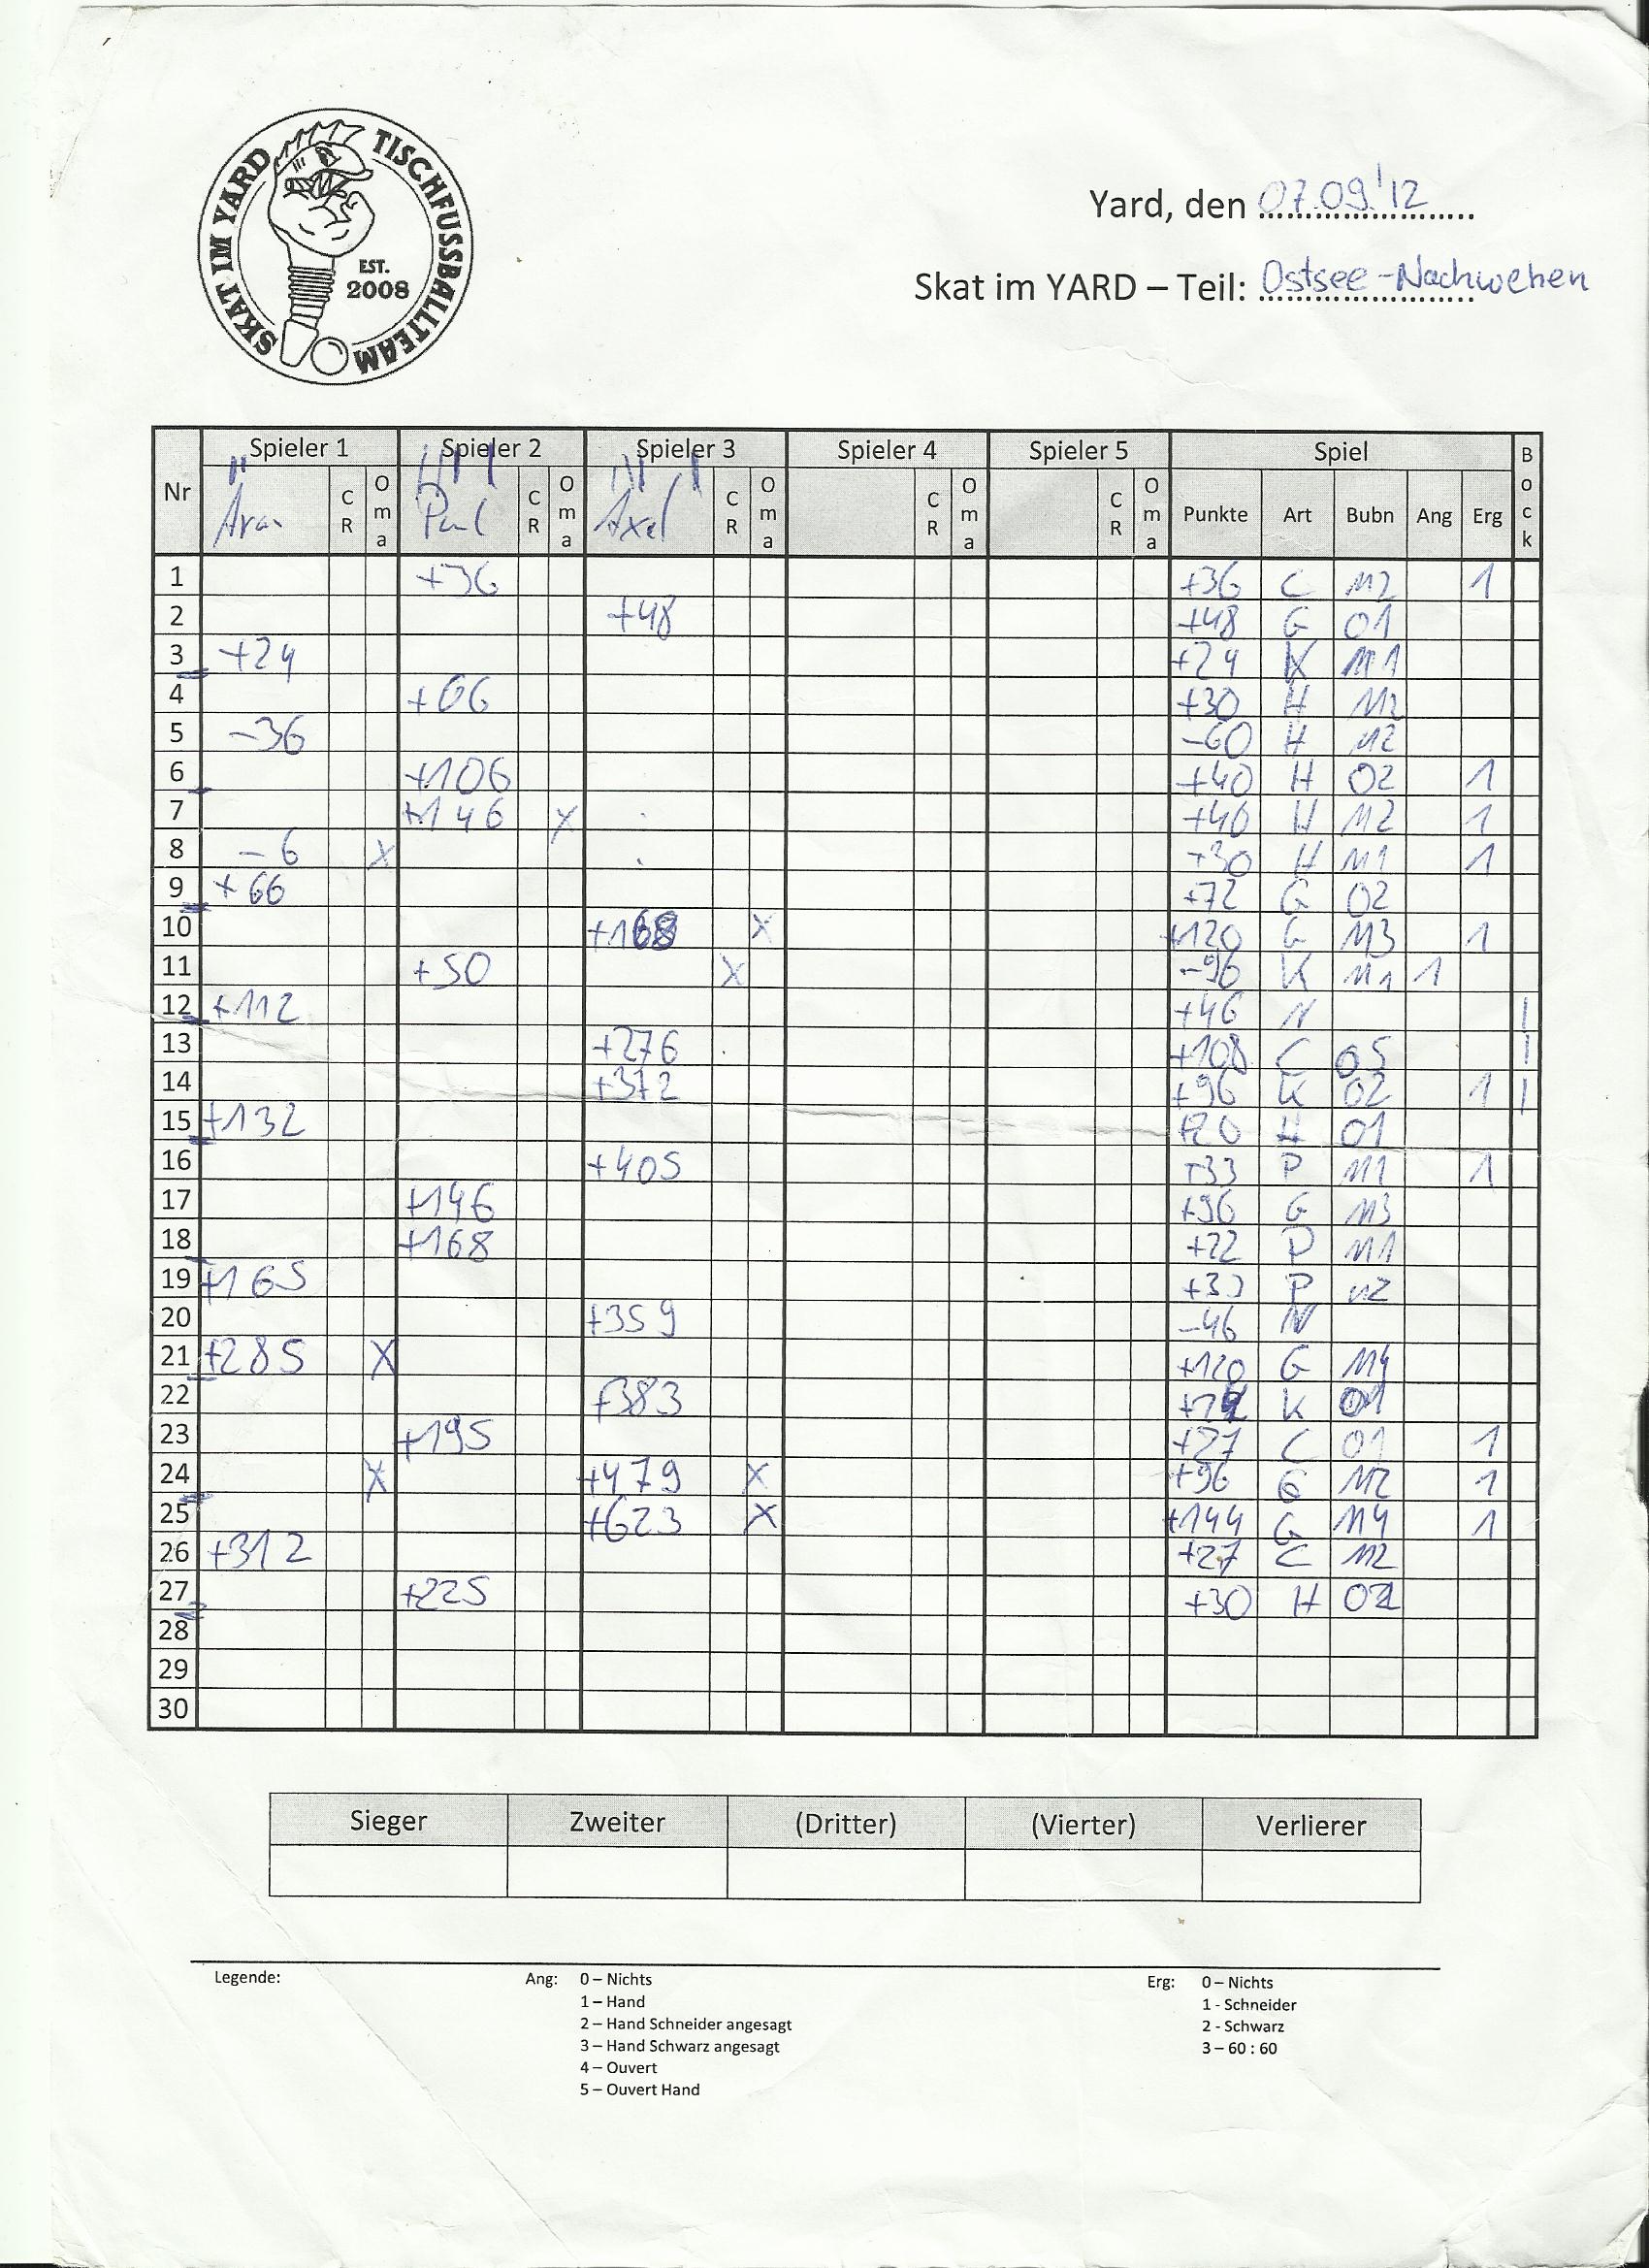 SKAT IM YARD TISCHFUSSBALLTEAM
EST.
2008
Yard, den 07.09.'12
Skat im YARD – Teil: Ostsee-Nachwehen
Nr Spieler 1 Spieler 2 Spieler 3 Spieler 4 Spieler 5 Spiel Bock
CR Oma Paul CR Oma Axel CR Oma CR Oma CR Oma Punkte Art Bubn Ang Erg
1 +36 +36 C M2 1
2 +48 +48 G O1
3 +24 +24 K M1
4 +66 +30 H M2
5 -36 -60 H M2
6 +106 +40 H O2 1
7 +146 X +40 H M2 1
8 -6 X +30 H M1 1
9 +66 +72 G O2
10 +168 X +120 G M3 1
11 +50 X -96 K M1 1
12 +112 +46 N |
13 +276 +108 C O5 |
14 +372 +96 K O2 1 |
15 +132 +20 H O1
16 +405 +33 P M1 1
17 +146 +96 G M3
18 +168 +22 P M1
19 +165 +33 P M2
20 +359 -46 N
21 +285 X +120 G M4
22 +383 K O1
23 +195 +27 C O1 1
24 X +479 X +96 G M2 1
25 +623 X +144 G M4 1
26 +312 +27 C M2
27 +225 +30 H O2
28
29
30
Sieger Zweiter (Dritter) (Vierter) Verlierer
Legende: Ang: 0 – Nichts Erg: 0 – Nichts
1 – Hand 1 - Schneider
2 – Hand Schneider angesagt 2 - Schwarz
3 – Hand Schwarz angesagt 3 – 60 : 60
4 – Ouvert
5 – Ouvert Hand